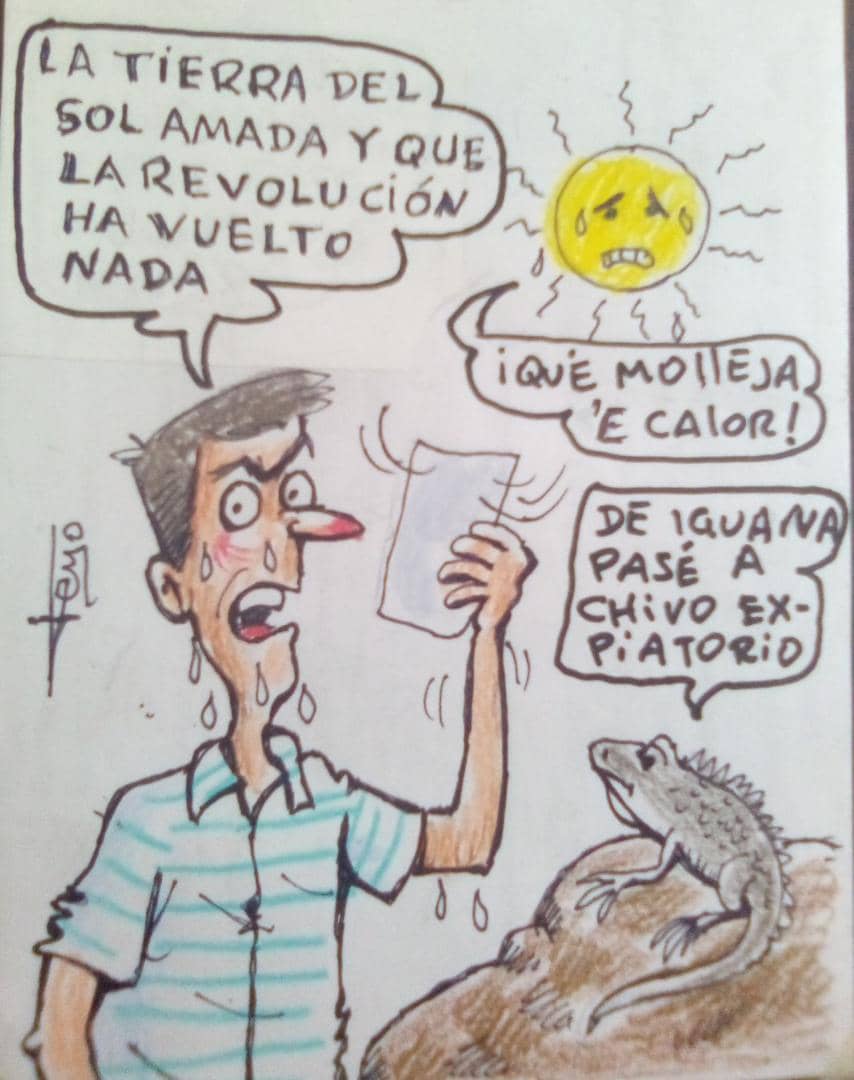 LA TIERRA DEL
SOL AMADA Y QUE
LA REVOLUCIÓN
HA VUELTO
NADA
¡QUÉ MOLLEJA
'E CALOR!
DE IGUANA
PASÉ A
CHIVO EX-
PIATORIO